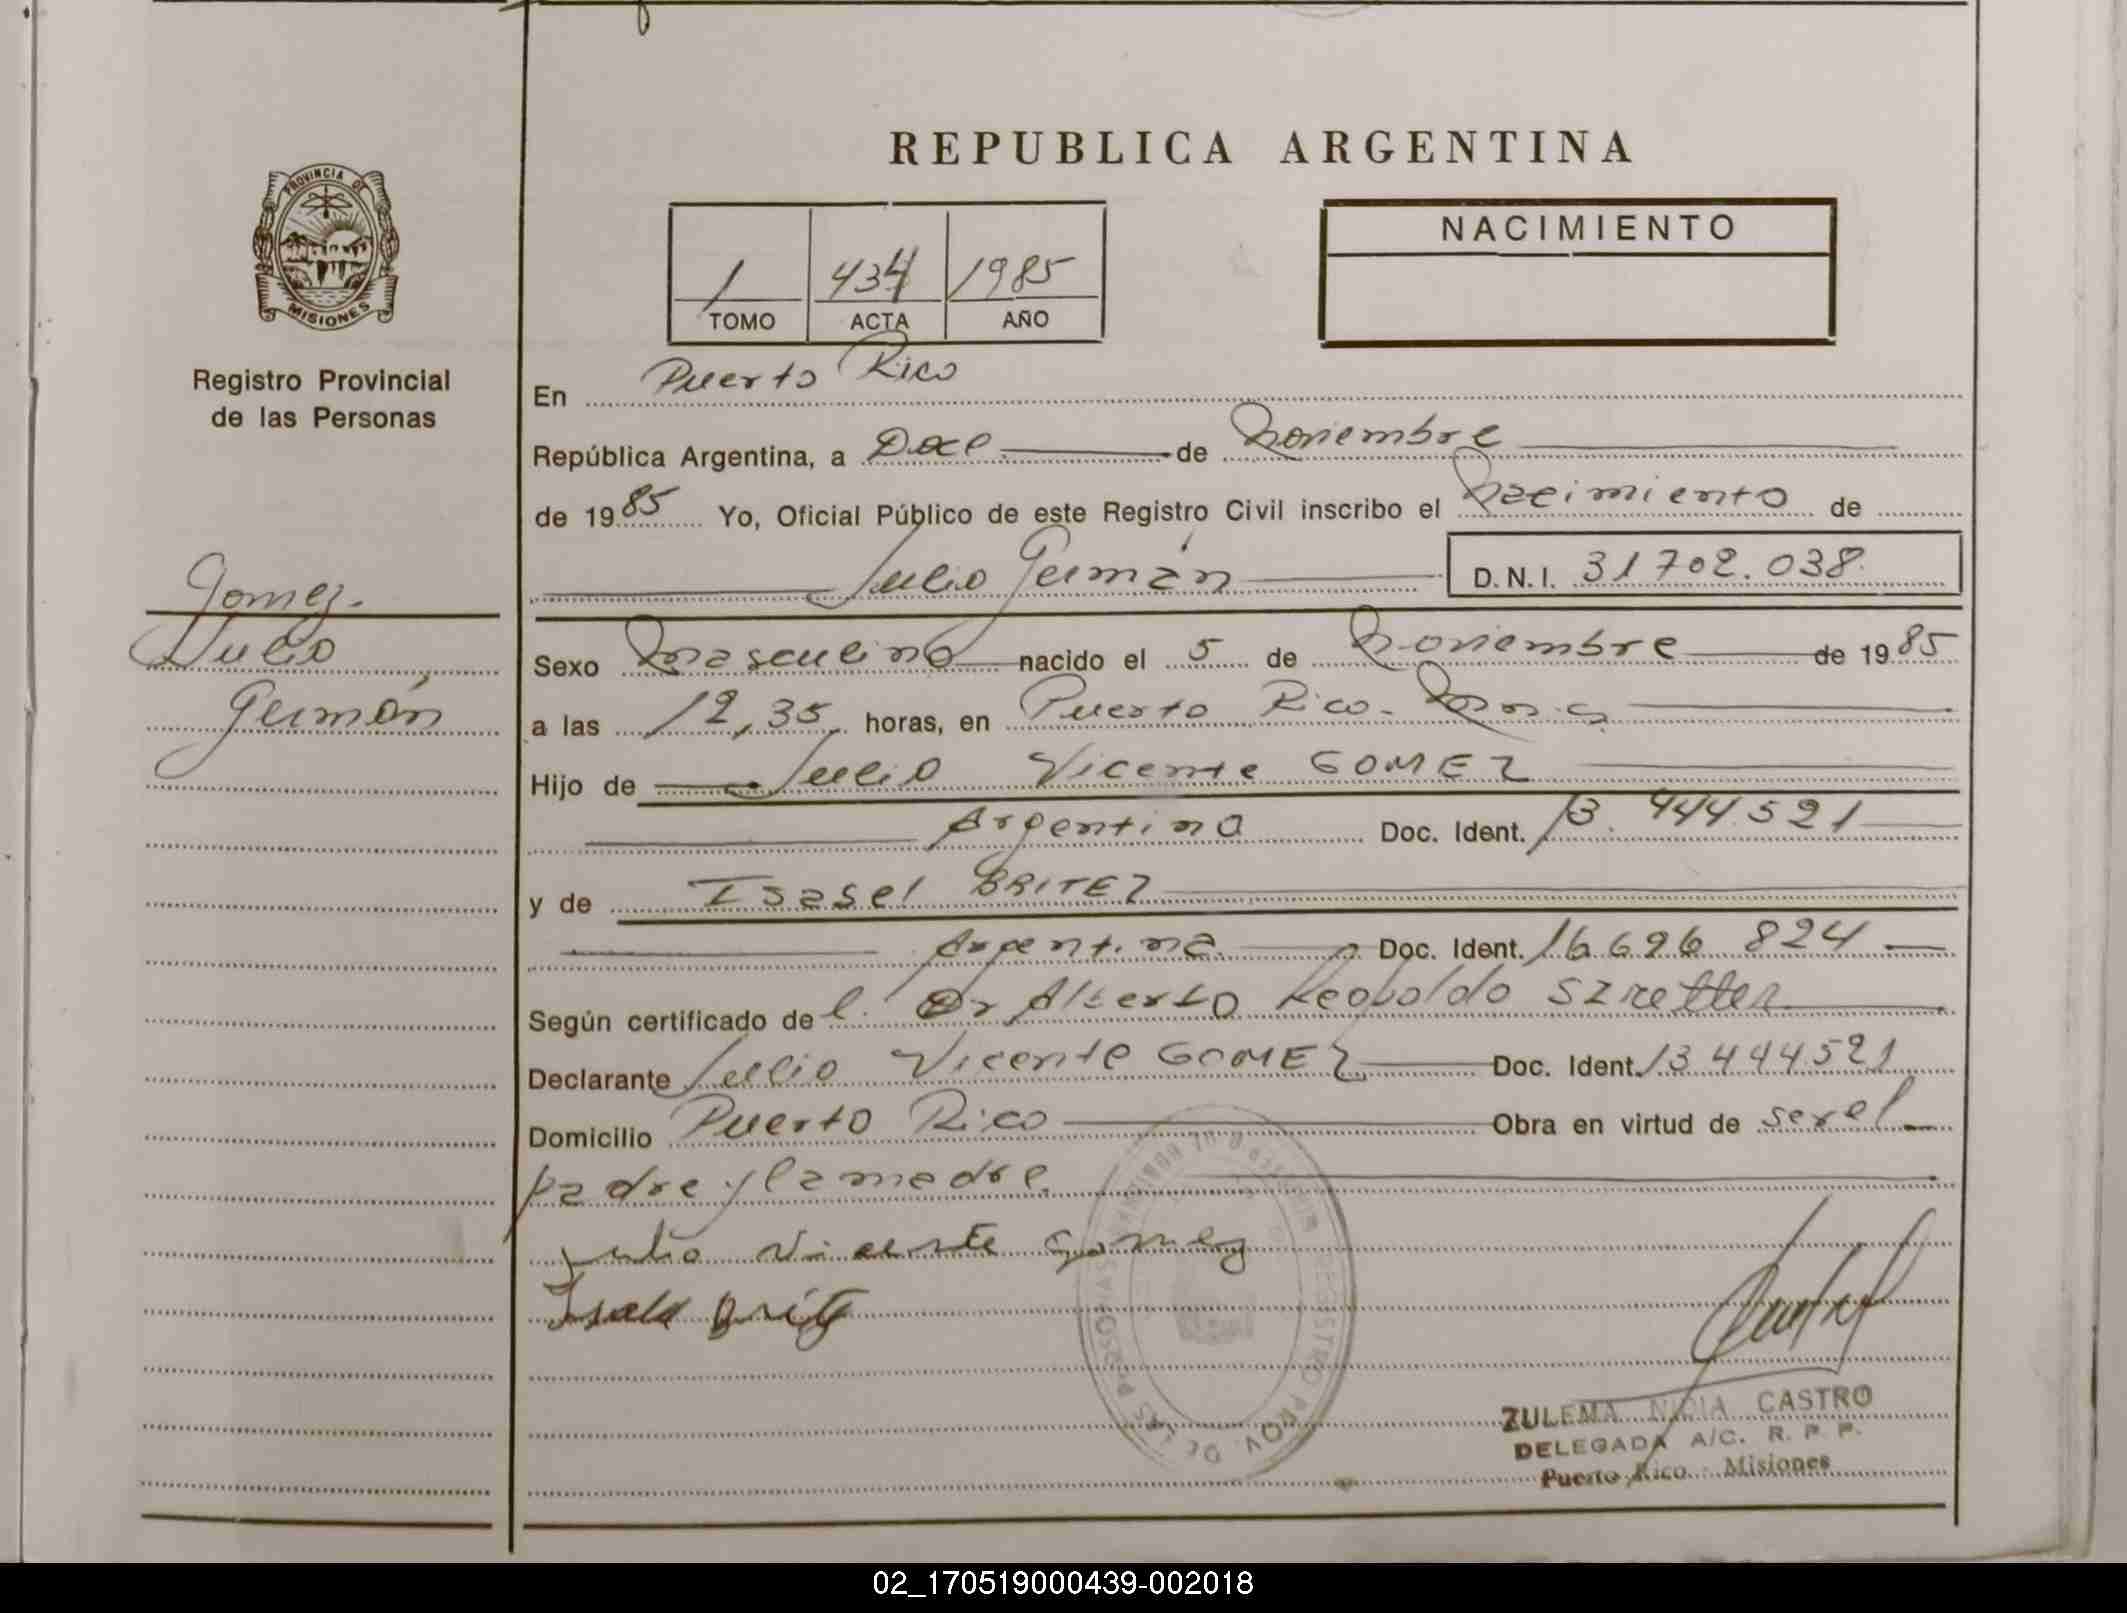 REPUBLICA ARGENTINA
PROVINCIA DE
MISIONES
Registro Provincial
de las Personas
Gomez.
Julio
Germán
1 434 1985
TOMO ACTA AÑO
NACIMIENTO
En Puerto Rico
República Argentina, a Doce de Noviembre
de 1985 Yo, Oficial Público de este Registro Civil inscribo el Nacimiento de
Julio Germán D.N.I. 31702.038
Sexo Masculino nacido el 5 de Noviembre de 1985
a las 12,35 horas, en Puerto Rico - Mns.
Hijo de Julio Vicente GOMEZ
Argentino Doc. Ident. 13.444521
y de Isabel BRITEZ
Argentina Doc. Ident. 16 696 824
Según certificado de l. Dr Alberto Leopoldo Szretter
Declarante Julio Vicente GOMEZ Doc. Ident. 13 444.521
Domicilio Puerto Rico Obra en virtud de ser el
padre y la madre
Julio Vicente Gomez
Isabel Britez
REGISTRO PROV. DE LAS PERSONAS
ZULEMA NIDIA CASTRO
DELEGADA A/C. R. P. P.
Puerto Rico - Misiones
02_170519000439-002018